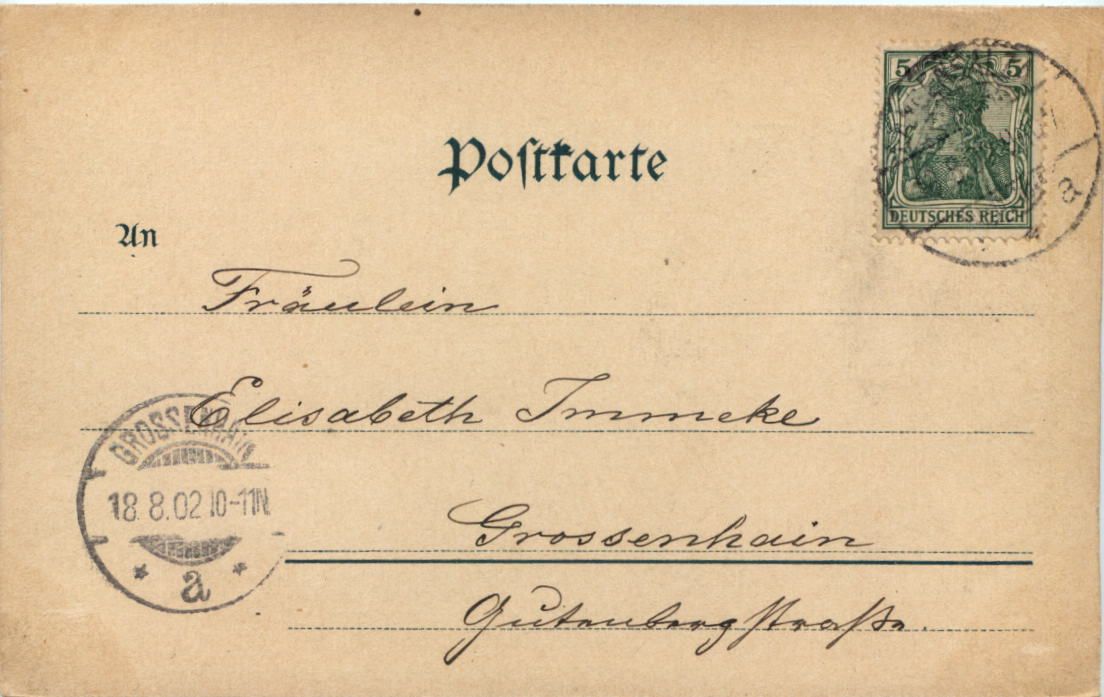 5 5
Postkarte
DEUTSCHES REICH
An
Fräulein
Elisabeth Immeke
GROSSENHAIN
18.8.02 10-11N.
* a *
Grossenhain
Gutenbergstraße.